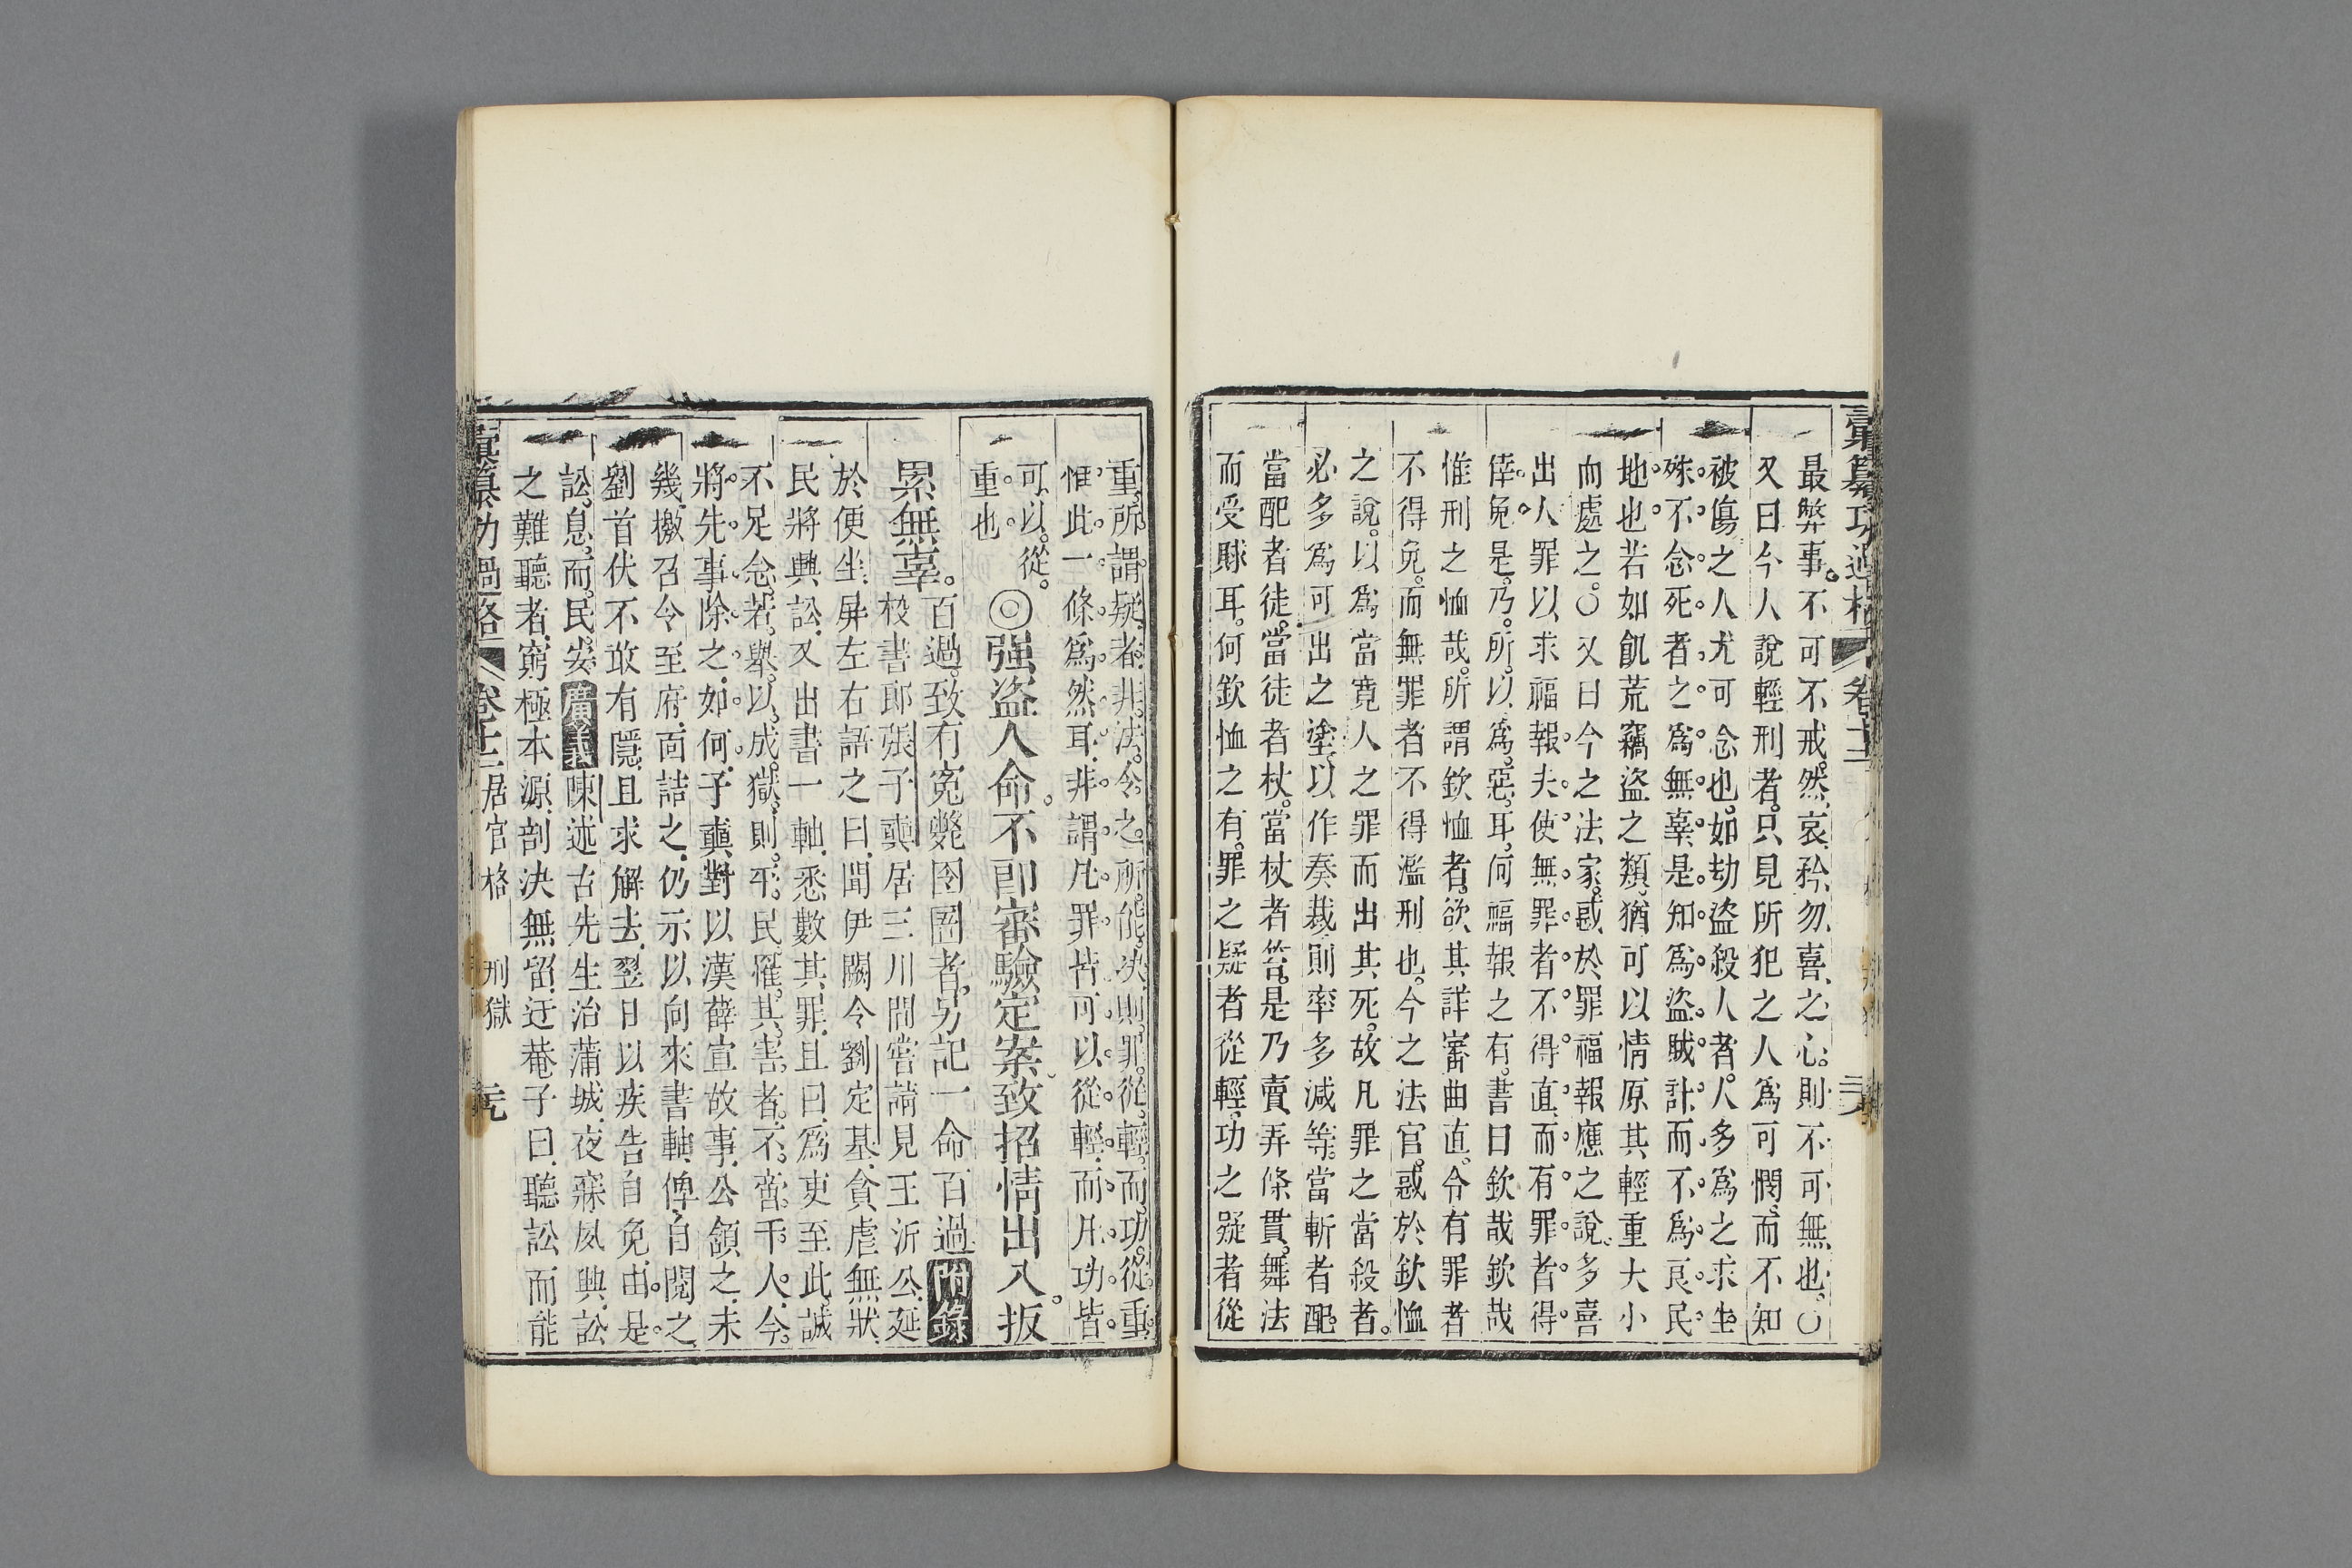 彙纂功過格 卷十二 二六
最弊事。不可不戒。然哀矜勿喜之心。則不可無也。〇
又曰今人說輕刑者。只見所犯之人爲可憫。而不知
被傷之人尤可念也。如劫盜殺人者。人多爲之求生
殊不念死者之爲無辜。是知爲盜賊計而不爲良民
地也。若如飢荒竊盜之類。猶可以情原其輕重大小
而處之。〇又曰今之法家。惑於罪福報應之說。多喜
出人罪以求福報。夫使無罪者不得直。而有罪者得
倖免。是乃所以爲惡耳。何福報之有。書曰欽哉欽哉
惟刑之恤哉。所謂欽恤者。欲其詳審曲直。令有罪者
不得免。而無罪者不得濫刑也。今之法官。惑於欽恤
之說。以爲當寬人之罪而出其死。故凡罪之當殺者。
必多爲可出之塗。以作奏裁。則率多減等。當斬者配。
當配者徒。當徒者杖。當杖者笞。是乃賣弄條貫。舞法
而受賕耳。何欽恤之有。罪之疑者從輕。功之疑者從
重。所謂疑者。非法令之所能決。則罪從輕。而功從重。
惟此一條爲然耳。非謂凡罪皆可以從輕。而凡功皆
可以從
重也。
◎强盜人命。不即審驗定案。致招情出入。扳
累無辜。百過。致有寃斃囹圄者。另記一命百過 附錄
校書郎張子奭居三川間嘗請見王沂公。延
於便坐。屏左右語之曰。聞伊闕令劉定基。貪虐無狀。
民將興訟。又出書一軸。悉數其罪。且曰。爲吏至此。誠
不足念。若舉以成獄。則平民罹其害者。不啻千人。今
將先事除之。如何。子奭對以漢薛宣故事。公頷之。未
幾。檄召令至府。面詰之。仍示以向來書軸。俾自閱之。
劉首伏不敢有隱。且求解去。翌日以疾告自免。由是
訟息而民安 廣義 陳述古先生治蒲城。夜寐夙興。訟
之難聽者。窮極本源。剖決無留。迂菴子曰。聽訟而能
彙纂功過格 卷十二 居官格 刑獄 元